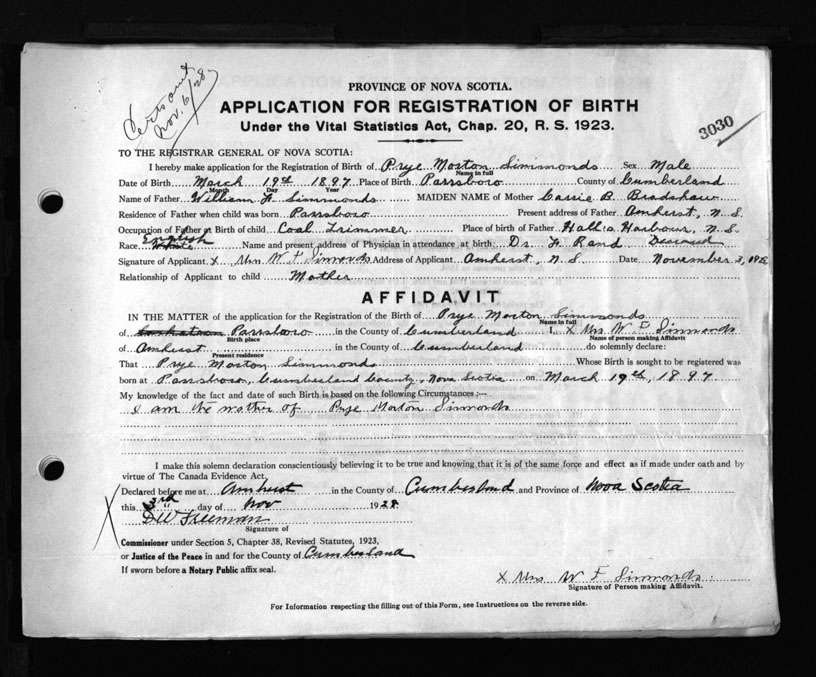 Cert sent
Nov. 6/28
PROVINCE OF NOVA SCOTIA.
APPLICATION FOR REGISTRATION OF BIRTH
Under the Vital Statistics Act, Chap. 20, R. S. 1923.
3030
TO THE REGISTRAR GENERAL OF NOVA SCOTIA:
I hereby make application for the Registration of Birth of Prye Morton Simmonds Sex Male
Name in full
Date of Birth March 19th 1897 Place of Birth Parrsboro County of Cumberland
Month Day Year
Name of Father William F. Simmonds MAIDEN NAME of Mother Carrie B. Bradshaw
Residence of Father when child was born Parrsboro Present address of Father Amherst, N.S.
Occupation of Father at Birth of child Coal Trimmer Place of birth of Father Hall's Harbour, N.S.
English
Race White Name and present address of Physician in attendance at birth: Dr. F. Rand Deceased
Signature of Applicant X Mrs W F Simonds Address of Applicant Amherst, N.S. Date November 3, 1928
Relationship of Applicant to child Mother
AFFIDAVIT
IN THE MATTER of the application for the Registration of the Birth of Prye Morton Simmonds
Name in full
of Parrsboro in the County of Cumberland I, X Mrs W F Simmonds
Birth place Name of person making Affidavit
of Amherst in the County of Cumberland do solemnly declare:
Present residence
That Prye Morton Simmonds Whose Birth is sought to be registered was
born at Parrsboro, Cumberland County, Nova Scotia on March 19th, 1897
My knowledge of the fact and date of such Birth is based on the following Circumstances :—
I am the mother of Prye Morton Simonds
I make this solemn declaration conscientiously believing it to be true and knowing that it is of the same force and effect as if made under oath and by
virtue of The Canada Evidence Act,
Declared before me at Amherst in the County of Cumberland and Province of Nova Scotia
this 3rd day of Nov 1928
D W Freeman
Signature of
Commissioner under Section 5, Chapter 38, Revised Statutes, 1923,
or Justice of the Peace in and for the County of Cumberland
If sworn before a Notary Public affix seal.
X Mrs W F Simmonds
Signature of Person making Affidavit.
For Information respecting the filling out of this Form, see Instructions on the reverse side.